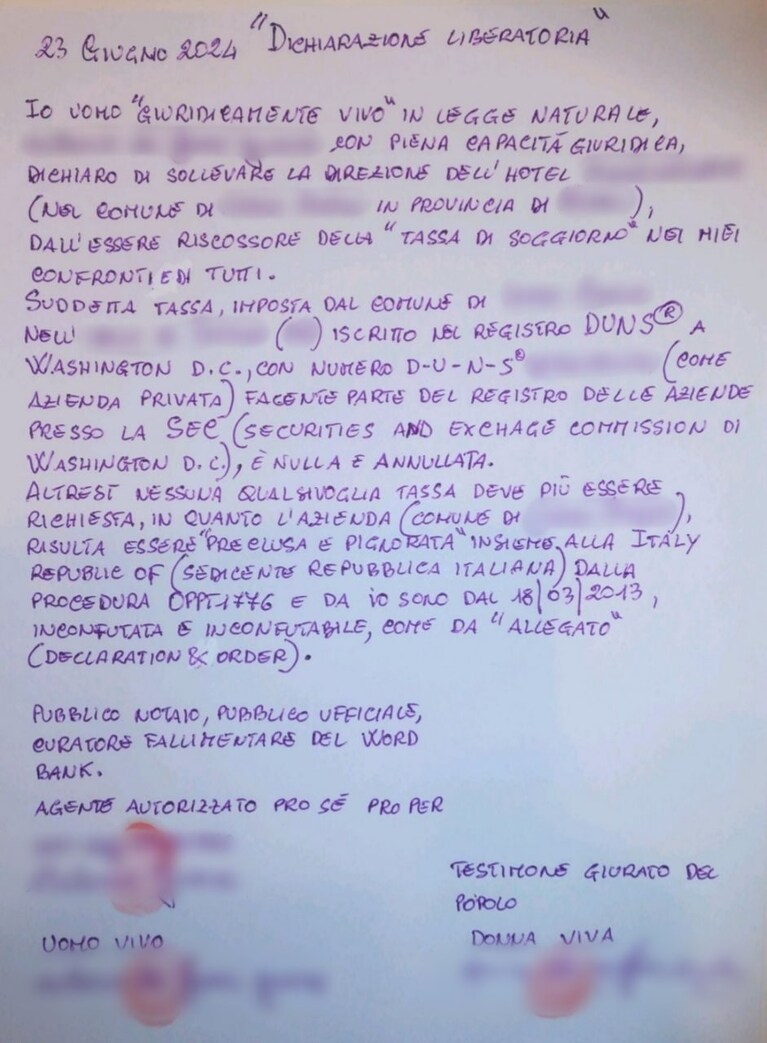 23 GIUGNO 2024 "DICHIARAZIONE LIBERATORIA"
IO UOMO "GIURIDICAMENTE VIVO" IN LEGGE NATURALE,
CON PIENA CAPACITÁ GIURIDICA,
DICHIARO DI SOLLEVARE LA DIREZIONE DELL'HOTEL
(NEL COMUNE DI IN PROVINCIA DI ),
DALL'ESSERE RISCOSSORE DELLA "TASSA DI SOGGIORNO" NEI MIEI
CONFRONTI E DI TUTTI.
SUDDETTA TASSA, IMPOSTA DAL COMUNE DI
NELL' ( ) ISCRITTO NEL REGISTRO DUNS® A
WASHINGTON D.C., CON NUMERO D-U-N-S® (COME
AZIENDA PRIVATA) FACENTE PARTE DEL REGISTRO DELLE AZIENDE
PRESSO LA SEC (SECURITIES AND EXCHAGE COMMISSION DI
WASHINGTON D.C.), È NULLA E ANNULLATA.
ALTRESÌ NESSUNA QUALSIVOGLIA TASSA DEVE PIÙ ESSERE
RICHIESTA, IN QUANTO L'AZIENDA (COMUNE DI ),
RISULTA ESSERE "PRECLUSA E PIGNORATA" INSIEME ALLA ITALY
REPUBLIC OF (SEDICENTE REPUBBLICA ITALIANA) DALLA
PROCEDURA OPPT1776 E DA IO SONO DAL 18/03/2013,
INCONFUTATA E INCONFUTABILE, COME DA "ALLEGATO"
(DECLARATION & ORDER).
PUBBLICO NOTAIO, PUBBLICO UFFICIALE,
CURATORE FALLIMENTARE DEL WORD
BANK.
AGENTE AUTORIZZATO PRO SÉ PRO PER
TESTIMONE GIURATO DEL
POPOLO
UOMO VIVO
DONNA VIVA